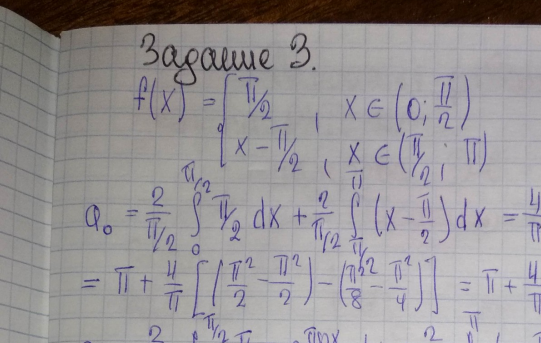 Задание 3.
f(x) = { π/2 , x ∈ (0; π/2)
x − π/2 , x ∈ (π/2; π)
a₀ = 2/(π/2) ∫₀^(π/2) π/2 dx + 2/(π/2) ∫_(π/2)^π (x − π/2) dx = 4/π
= π + 4/π [(π²/2 − π²/2) − (π²/8 − π²/4)] = π + 4/π